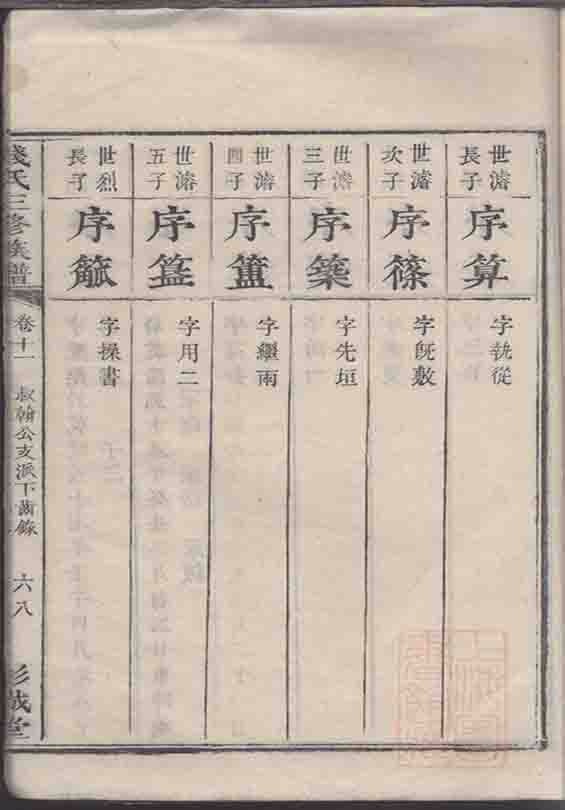 世濬長子
序算
字執從
世濬次子
序篠
字旣敷
世濬三子
序築
字先垣
世濬四子
序簠
字繼雨
世濬五子
序簋
字用二
世烈長子
序觚
字操書
錢氏三修族譜
卷十一
叔翰公支派下齒錄
六八
彭城堂